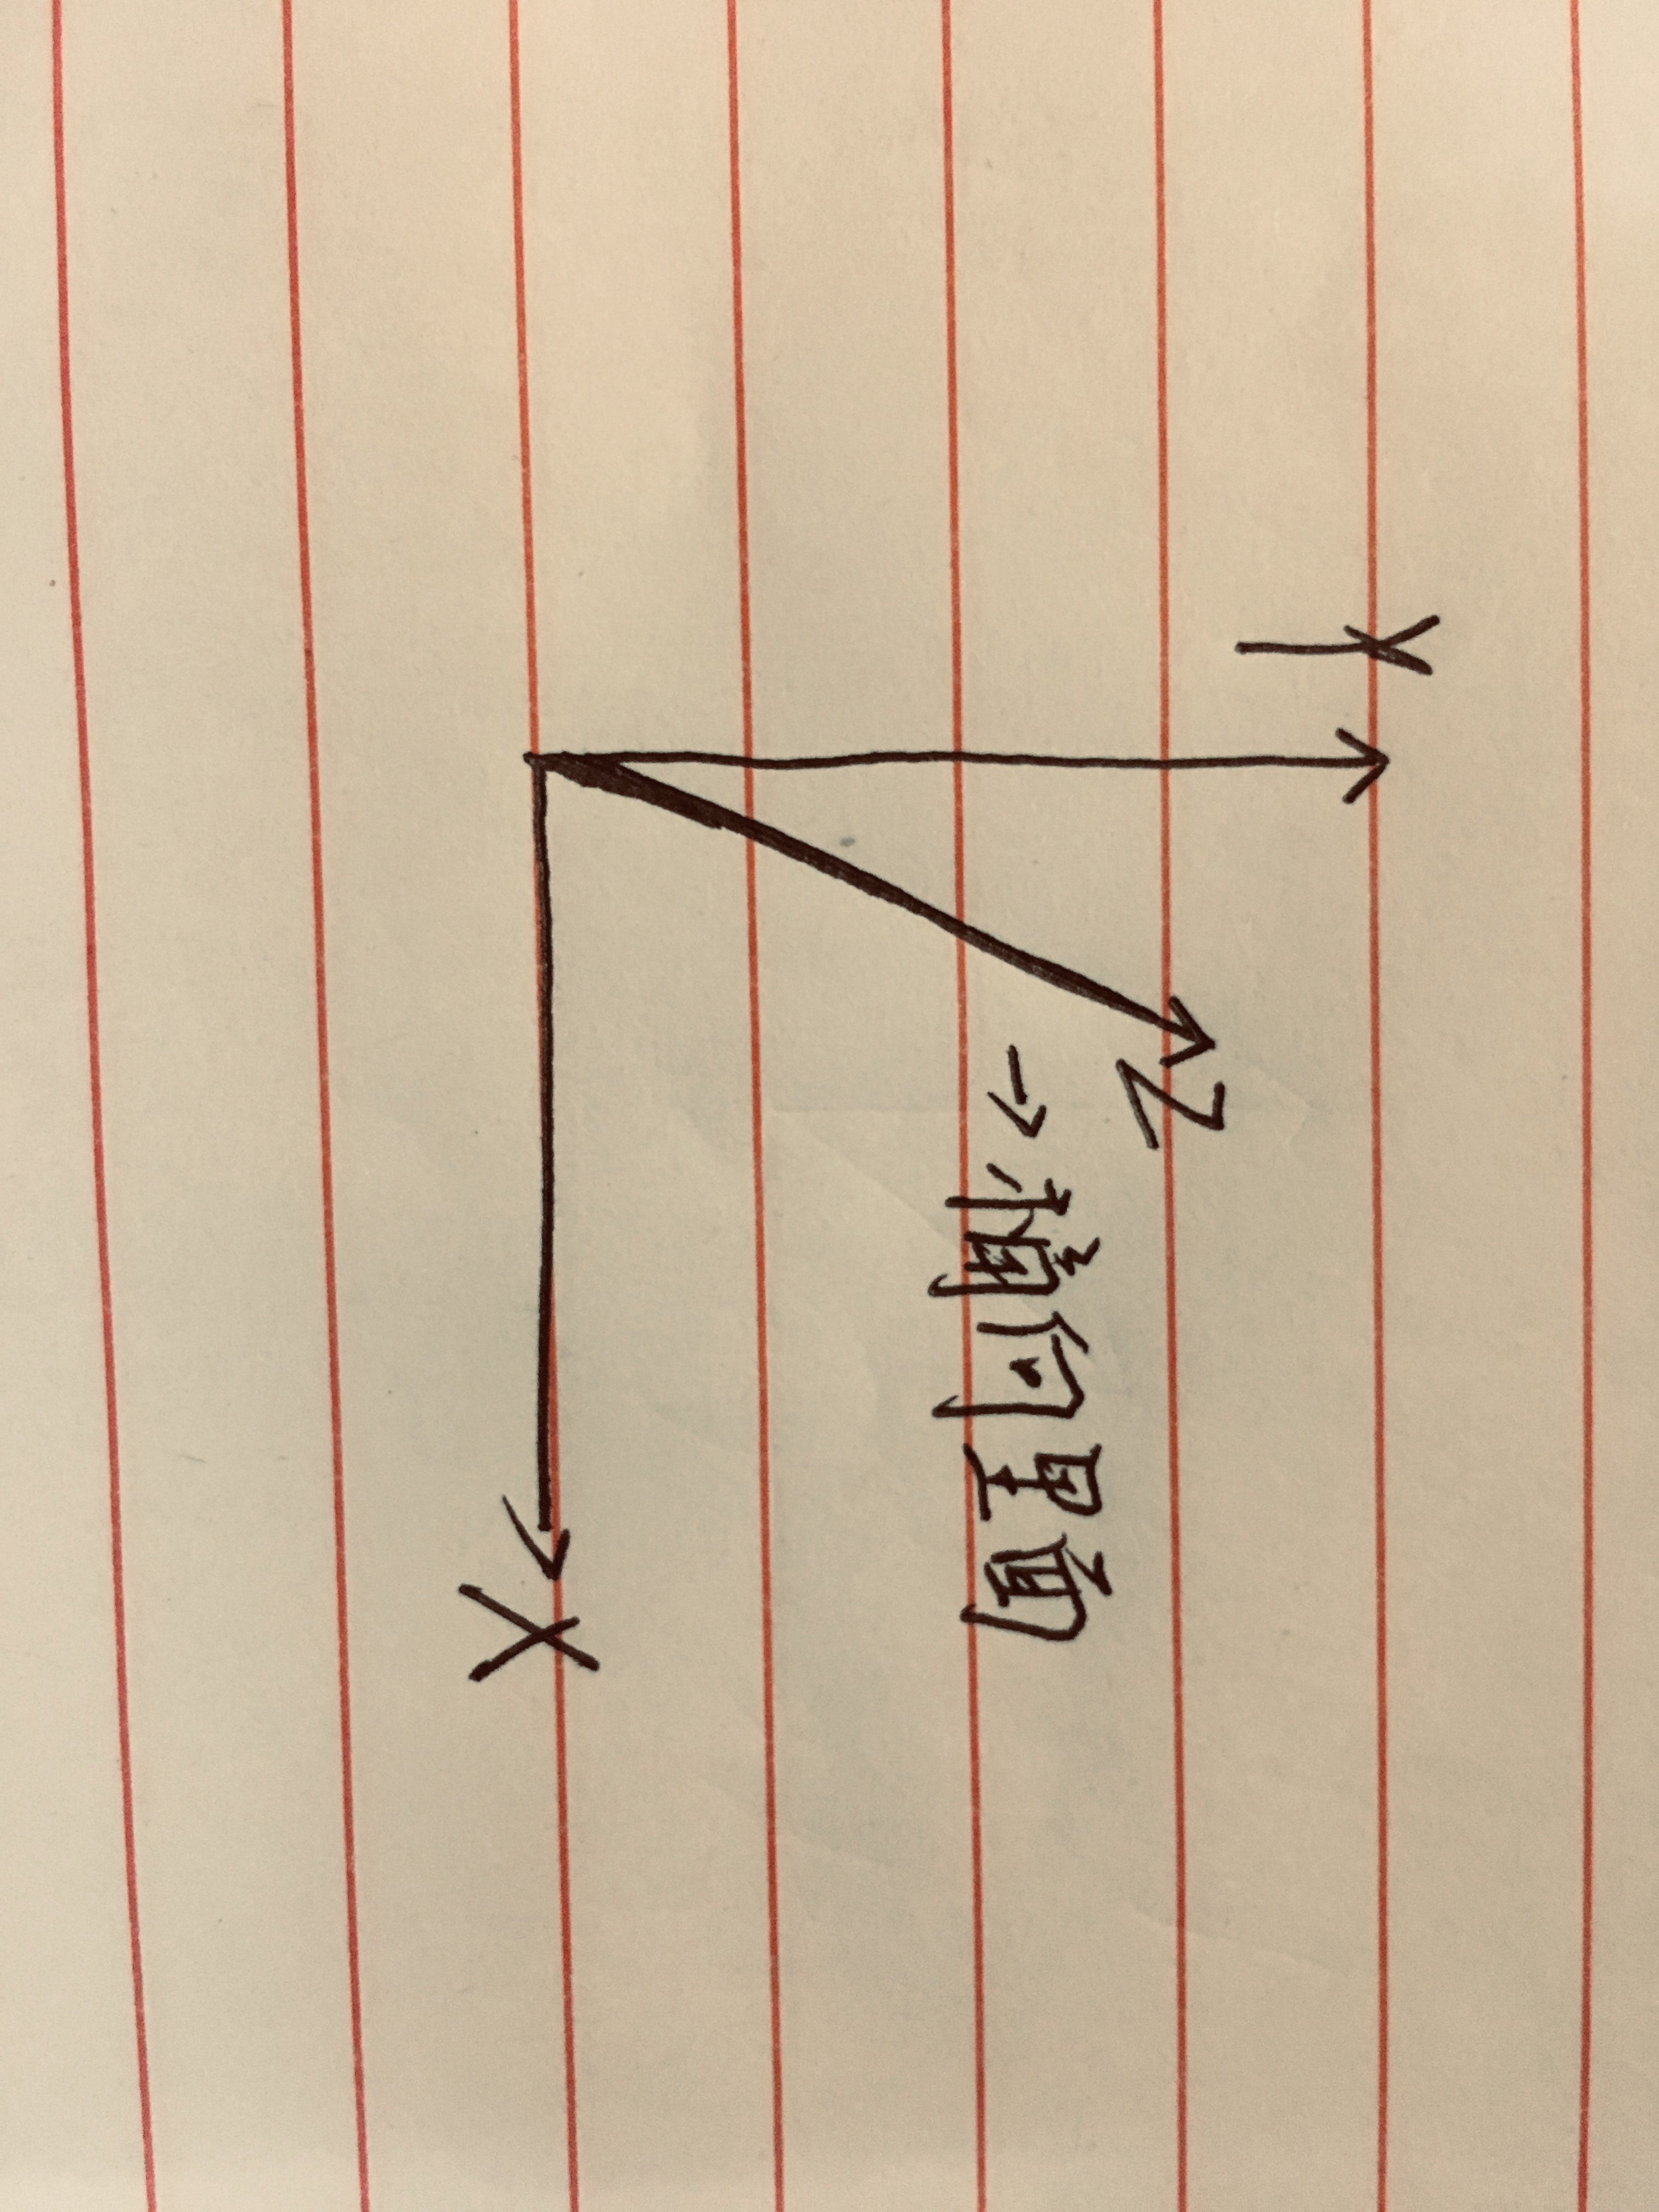 Y
Z
→桶向里面
X